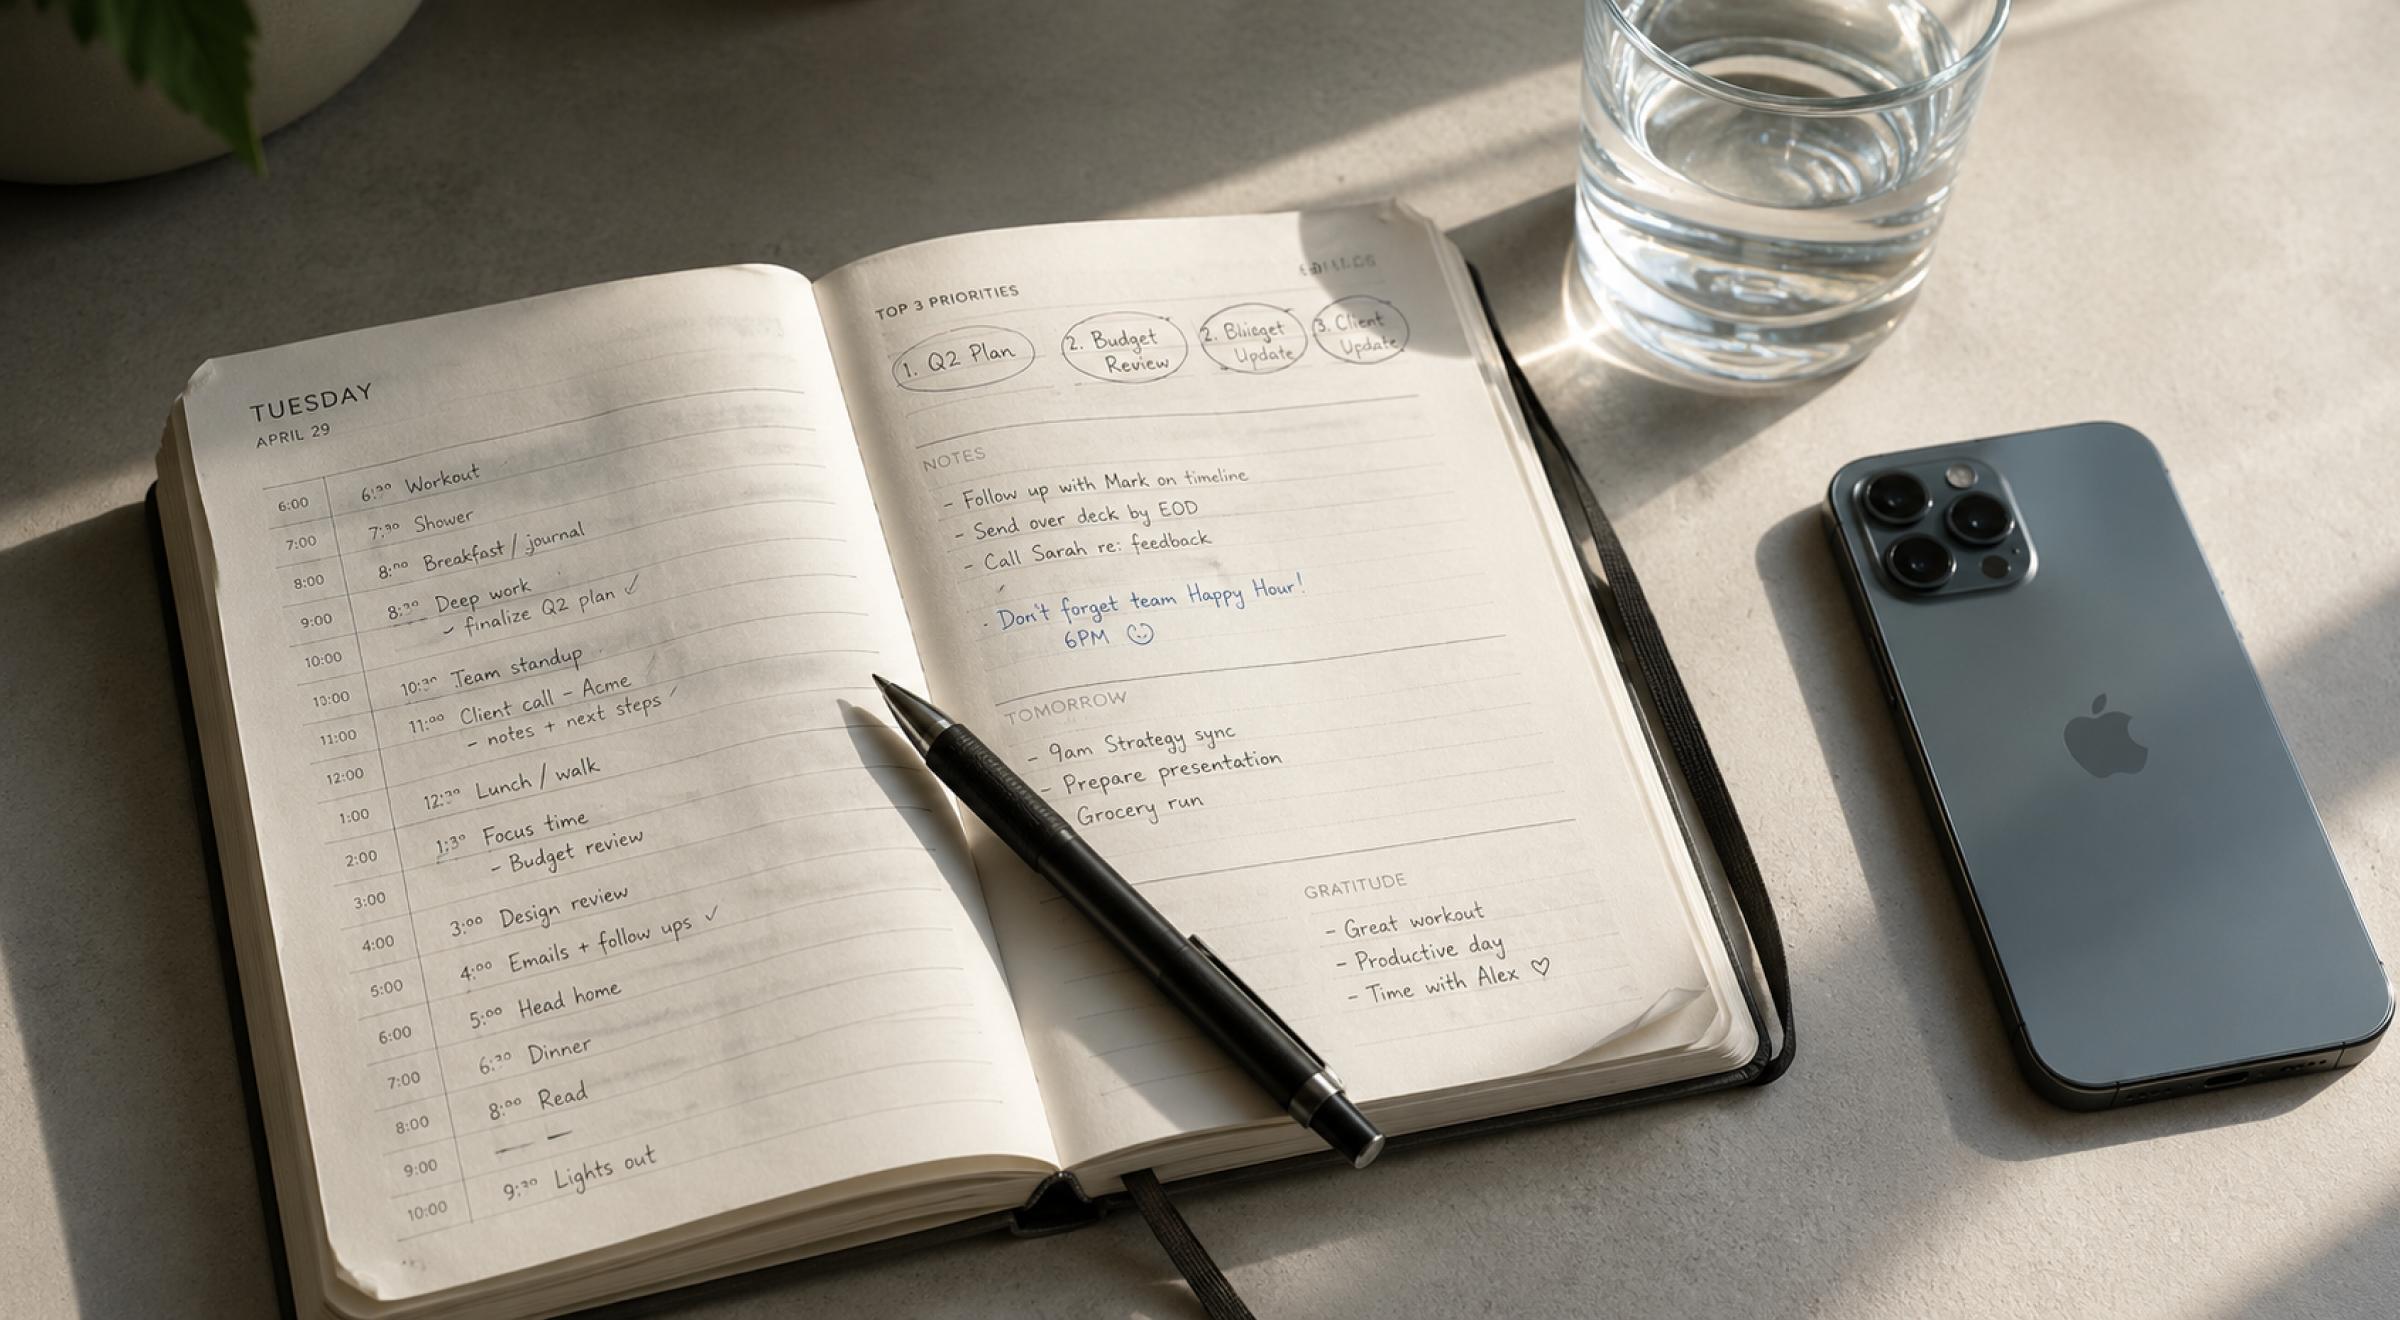 TUESDAY
APRIL 29
6:00
6:30 Workout
7:00
7:30 Shower
8:00
8:00 Breakfast / journal
9:00
8:30 Deep work
- finalize Q2 plan ✓
10:00
10:30 Team standup
10:00
11:00 Client call - Acme
11:00
- notes + next steps
12:00
12:30 Lunch / walk
1:00
1:30 Focus time
2:00
- Budget review
3:00
3:00 Design review
4:00
4:00 Emails + follow ups ✓
5:00
5:00 Head home
6:00
6:30 Dinner
7:00
8:00 Read
8:00
9:00
9:30 Lights out
10:00
TOP 3 PRIORITIES
1. Q2 Plan
2. Budget
Review
2.
Update
3. Client
Update
NOTES
- Follow up with Mark on timeline
- Send over deck by EOD
- Call Sarah re: feedback
- Don't forget team Happy Hour!
6PM ☺
TOMORROW
- 9am Strategy sync
- Prepare presentation
Grocery run
GRATITUDE
- Great workout
- Productive day
- Time with Alex ♡